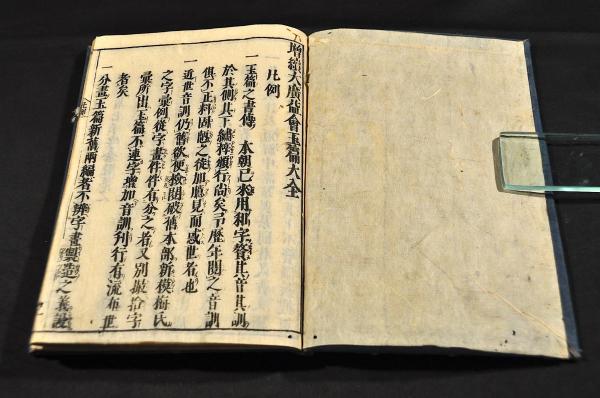 增續大廣益會玉篇大全
凡例
一玉篇之書傳 本朝已來用和字贅其音其訓
於其側其下繡梓頒行尚矣予歷年閱之音訓
俱不正料固魈之徒加臆見而惑世者也
一近世音訓仍舊欲便撿閱破舊本部新模梅氏
之字彙例從字畫件件有分之者又別最拾字
彙所出玉篇不逮字增加音訓刊行有流布世
者矣
一分畫玉篇新舊兩編者不辨字畫製造之義設